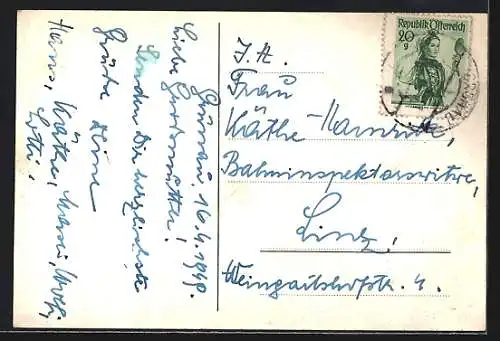 Grünau, 16.4.1949.
Liebe Großmutter!
Senden Dir herzlichste
Grüße Deine
Hans, Käthe,
Lotte,
Republik Österreich
20
g
I. H.
Frau
Käthe
Bahninspektorswitwe,
Linz,
Weingartshofstr. 4.